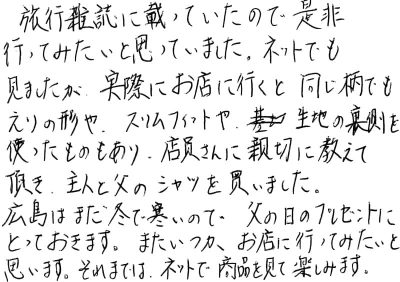 旅行雑誌に載っていたので是非
行ってみたいと思っていました。ネットでも
見ましたが、実際にお店に行くと同じ柄でも
えりの形や、スリムフィットや、生地の裏側を
使ったものもあり、店員さんに親切に教えて
頂き、主人と父のシャツを買いました。
広島はまだ冬で寒いので、父の日のプレゼントに
とっておきます。またいつか、お店に行ってみたいと
思います。それまでは、ネットで商品を見て楽しみます。